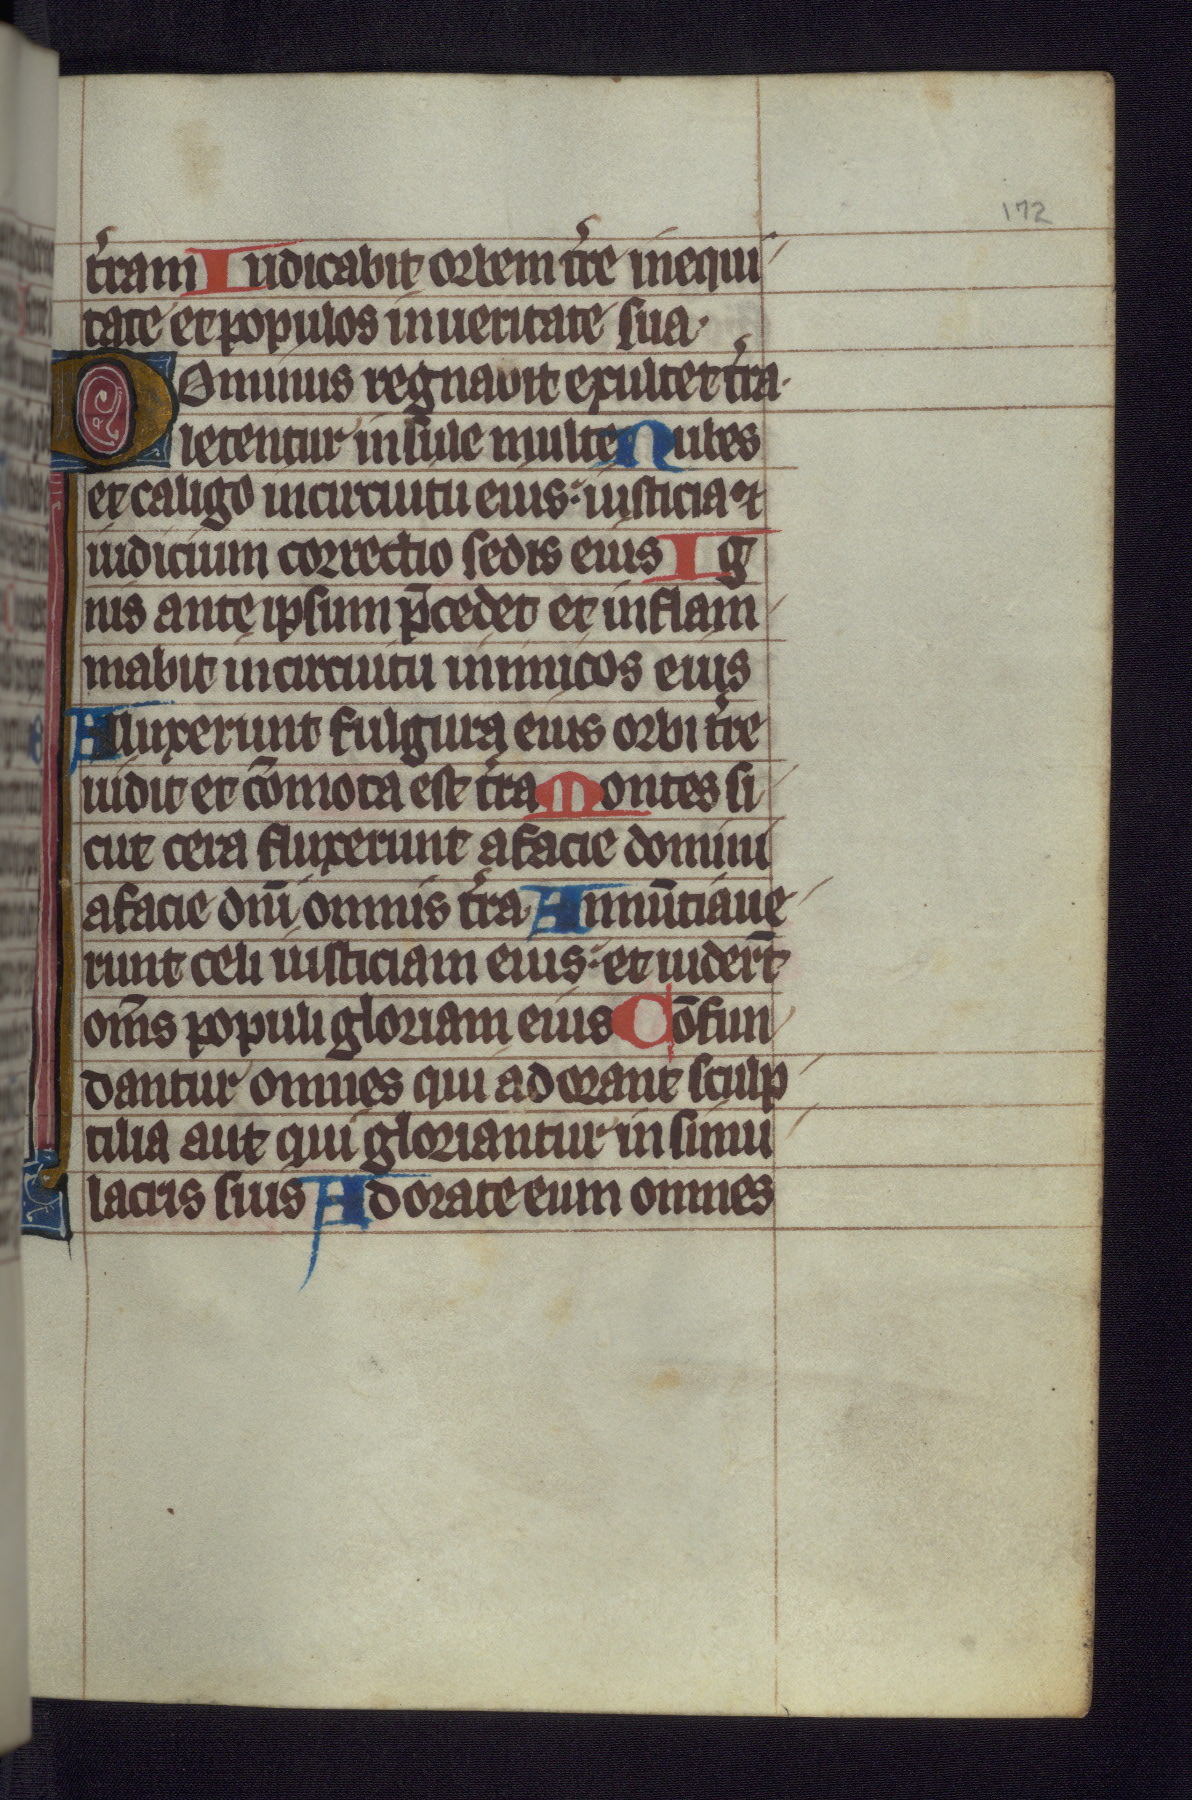 172
t͛ram Iudicabit orbem t͛re inequi
tate et populos inueritate sua.
Dominus regnauit exultet t͛ra.
letentur insule multe Nubes
et caligo incircuitu eius: iusticia et
iudicium correctio sedis eius Ig
nis ante ipsum p̄cedet et inflam
mabit incircuitu inimicos eius
Alluxerunt fulgura eius orbi t͛re
uidit et cōmota est t͛ra Montes si
cut cera fluxerunt afacie domini
afacie dn̄i omnis t͛ra Annūtiaue
runt celi iusticiam eius: et uider̄t
om̄s populi gloriam eius Cōfun
dantur omnes qui adorant sculp
tilia aut qui gloriantur in simu
lacris suis Adorate eum omnes